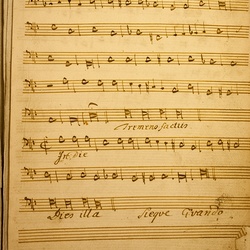 Tremens factus
Dies illa Seque Quando